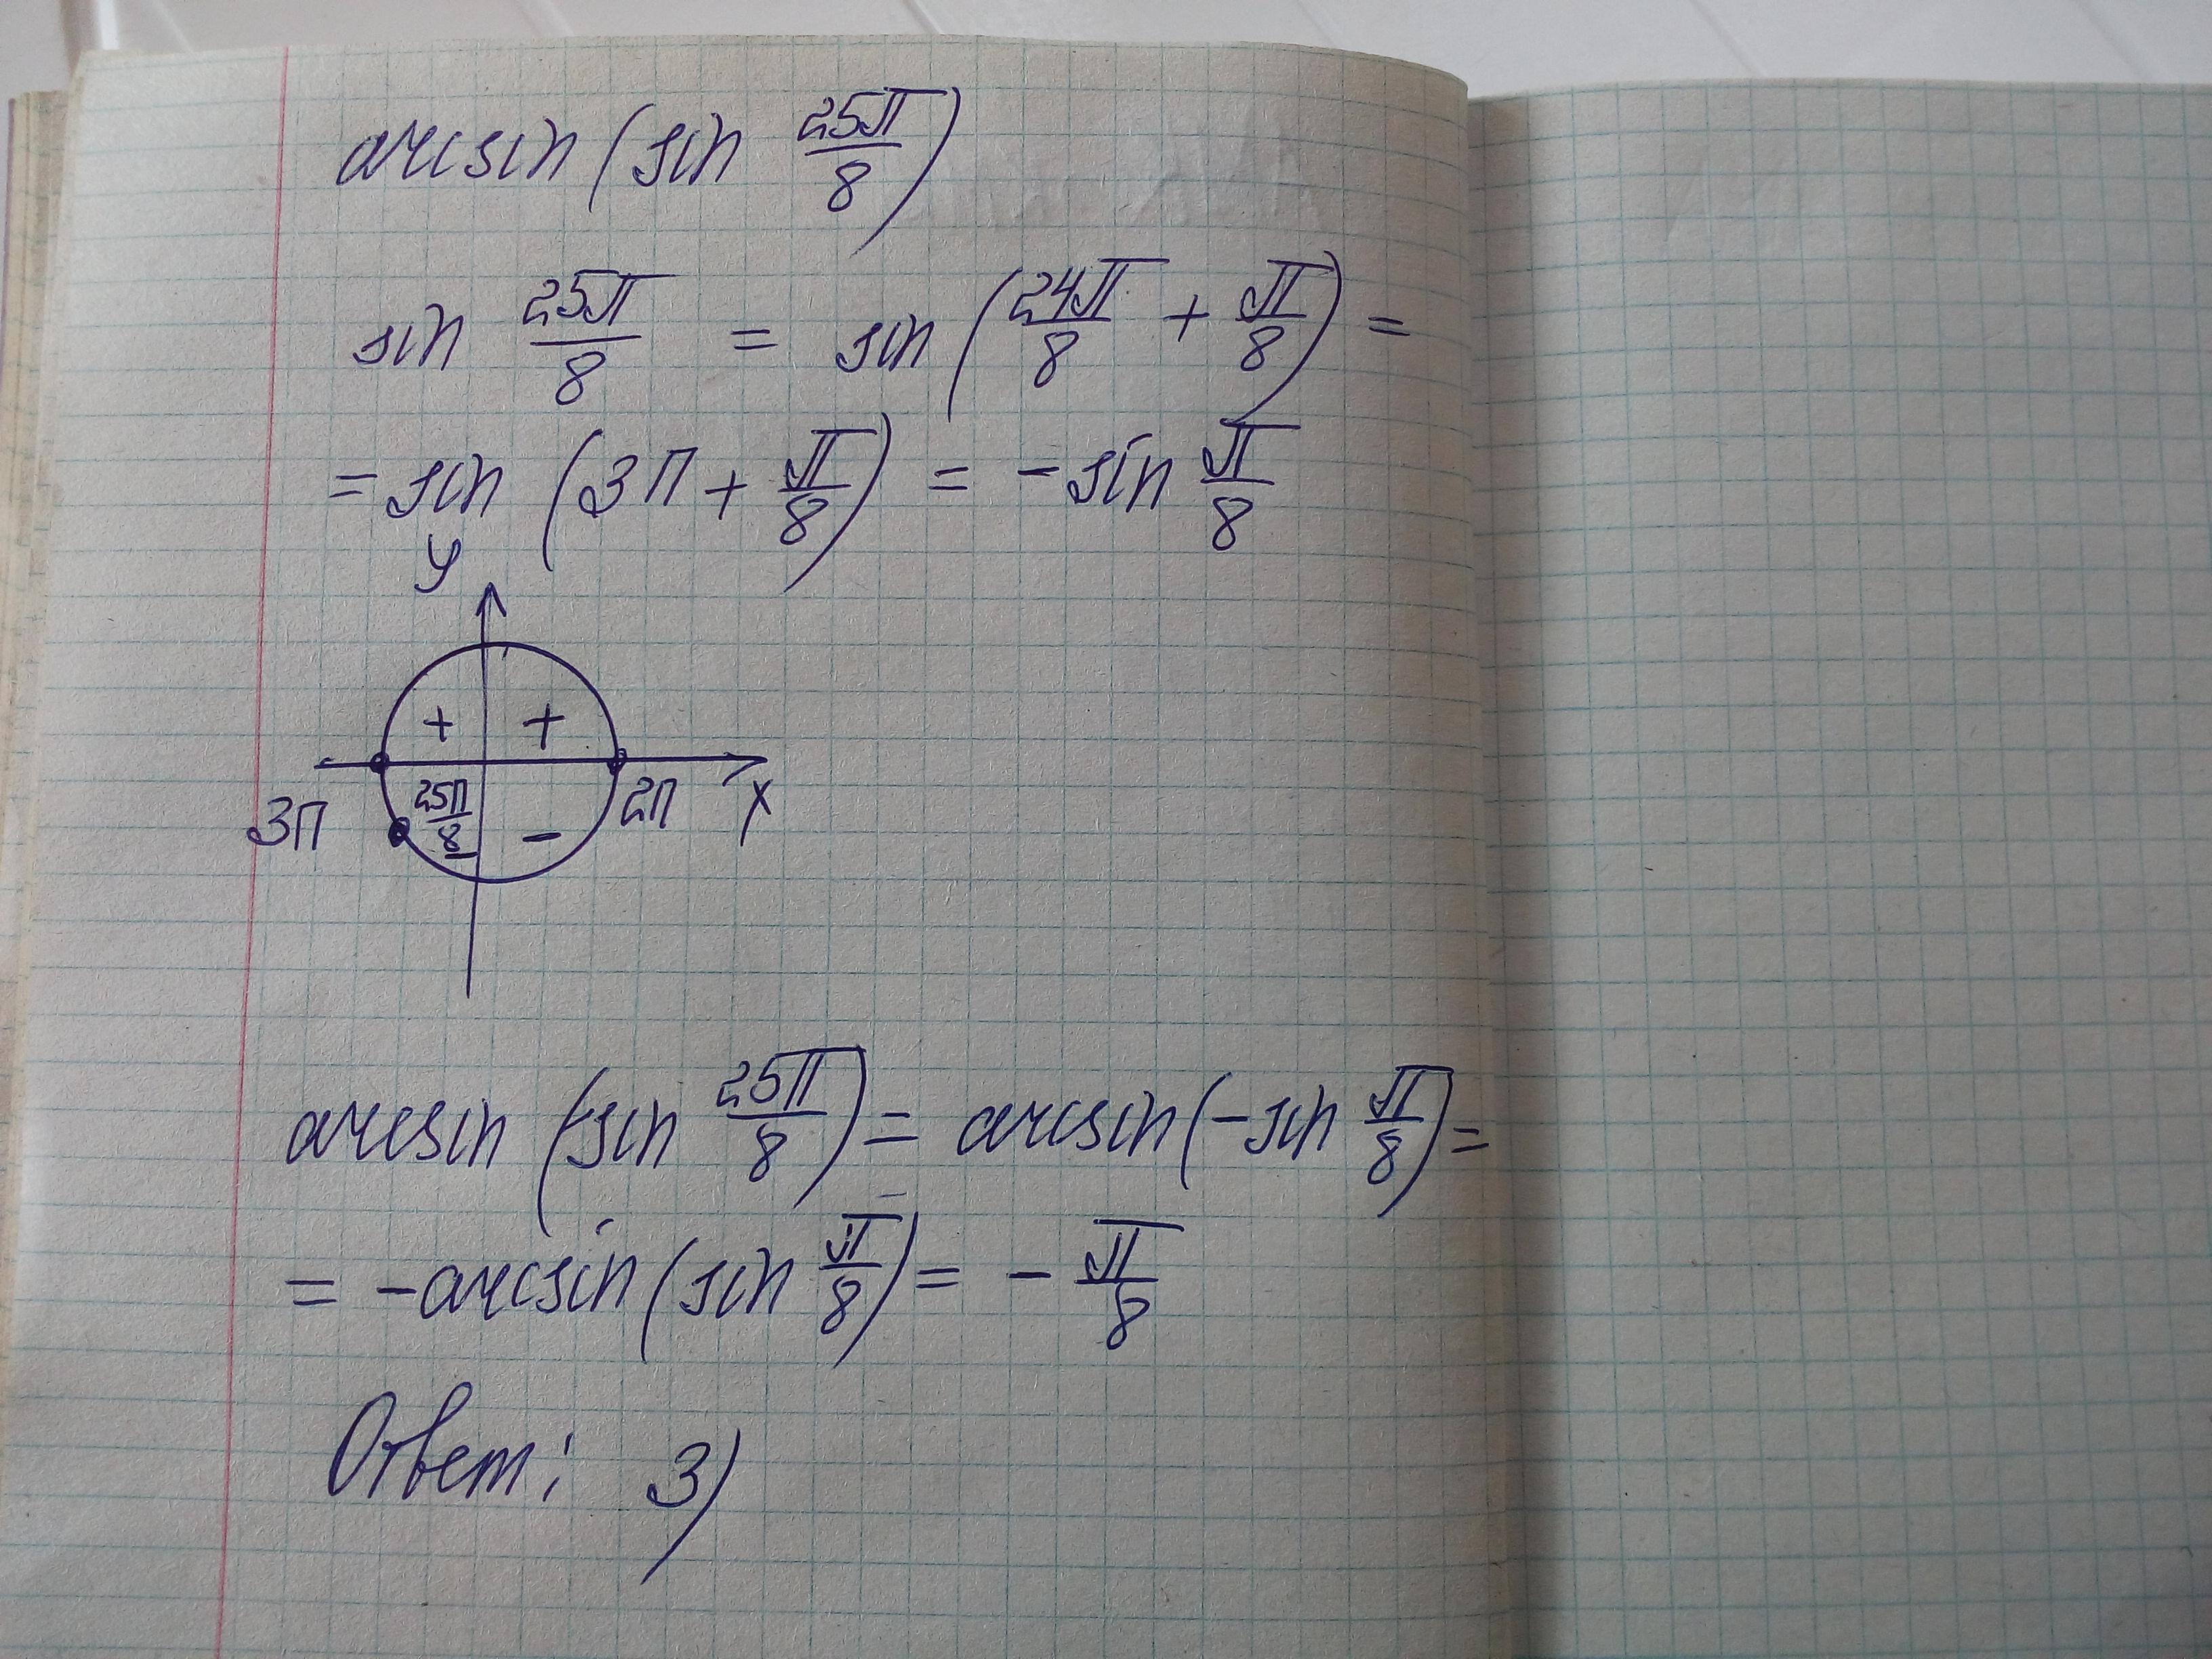 arcsin (sin 25π/8)
sin 25π/8 = sin (24π/8 + π/8) =
= sin (3π + π/8) = - sin π/8
y
+ +
3π 25π/8 - 2π x
-
arcsin (sin 25π/8) = arcsin (- sin π/8) =
= - arcsin (sin π/8) = - π/8
Ответ: 3)